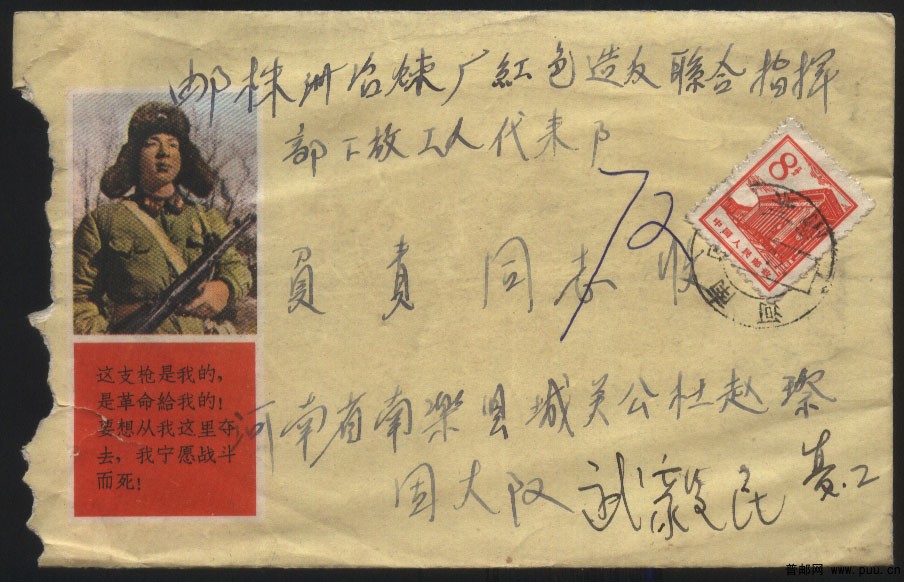 邮株洲冶炼厂紅色造反聯合指揮
部下放工人代表队
負責同志收
河南省南樂县城关公社赵
固大队 武 民
8分
中国人民邮政
河南
这支枪是我的,
是革命給我的!
要想从我这里夺
去,我宁愿战斗
而死!
普邮网 www.puu.cn